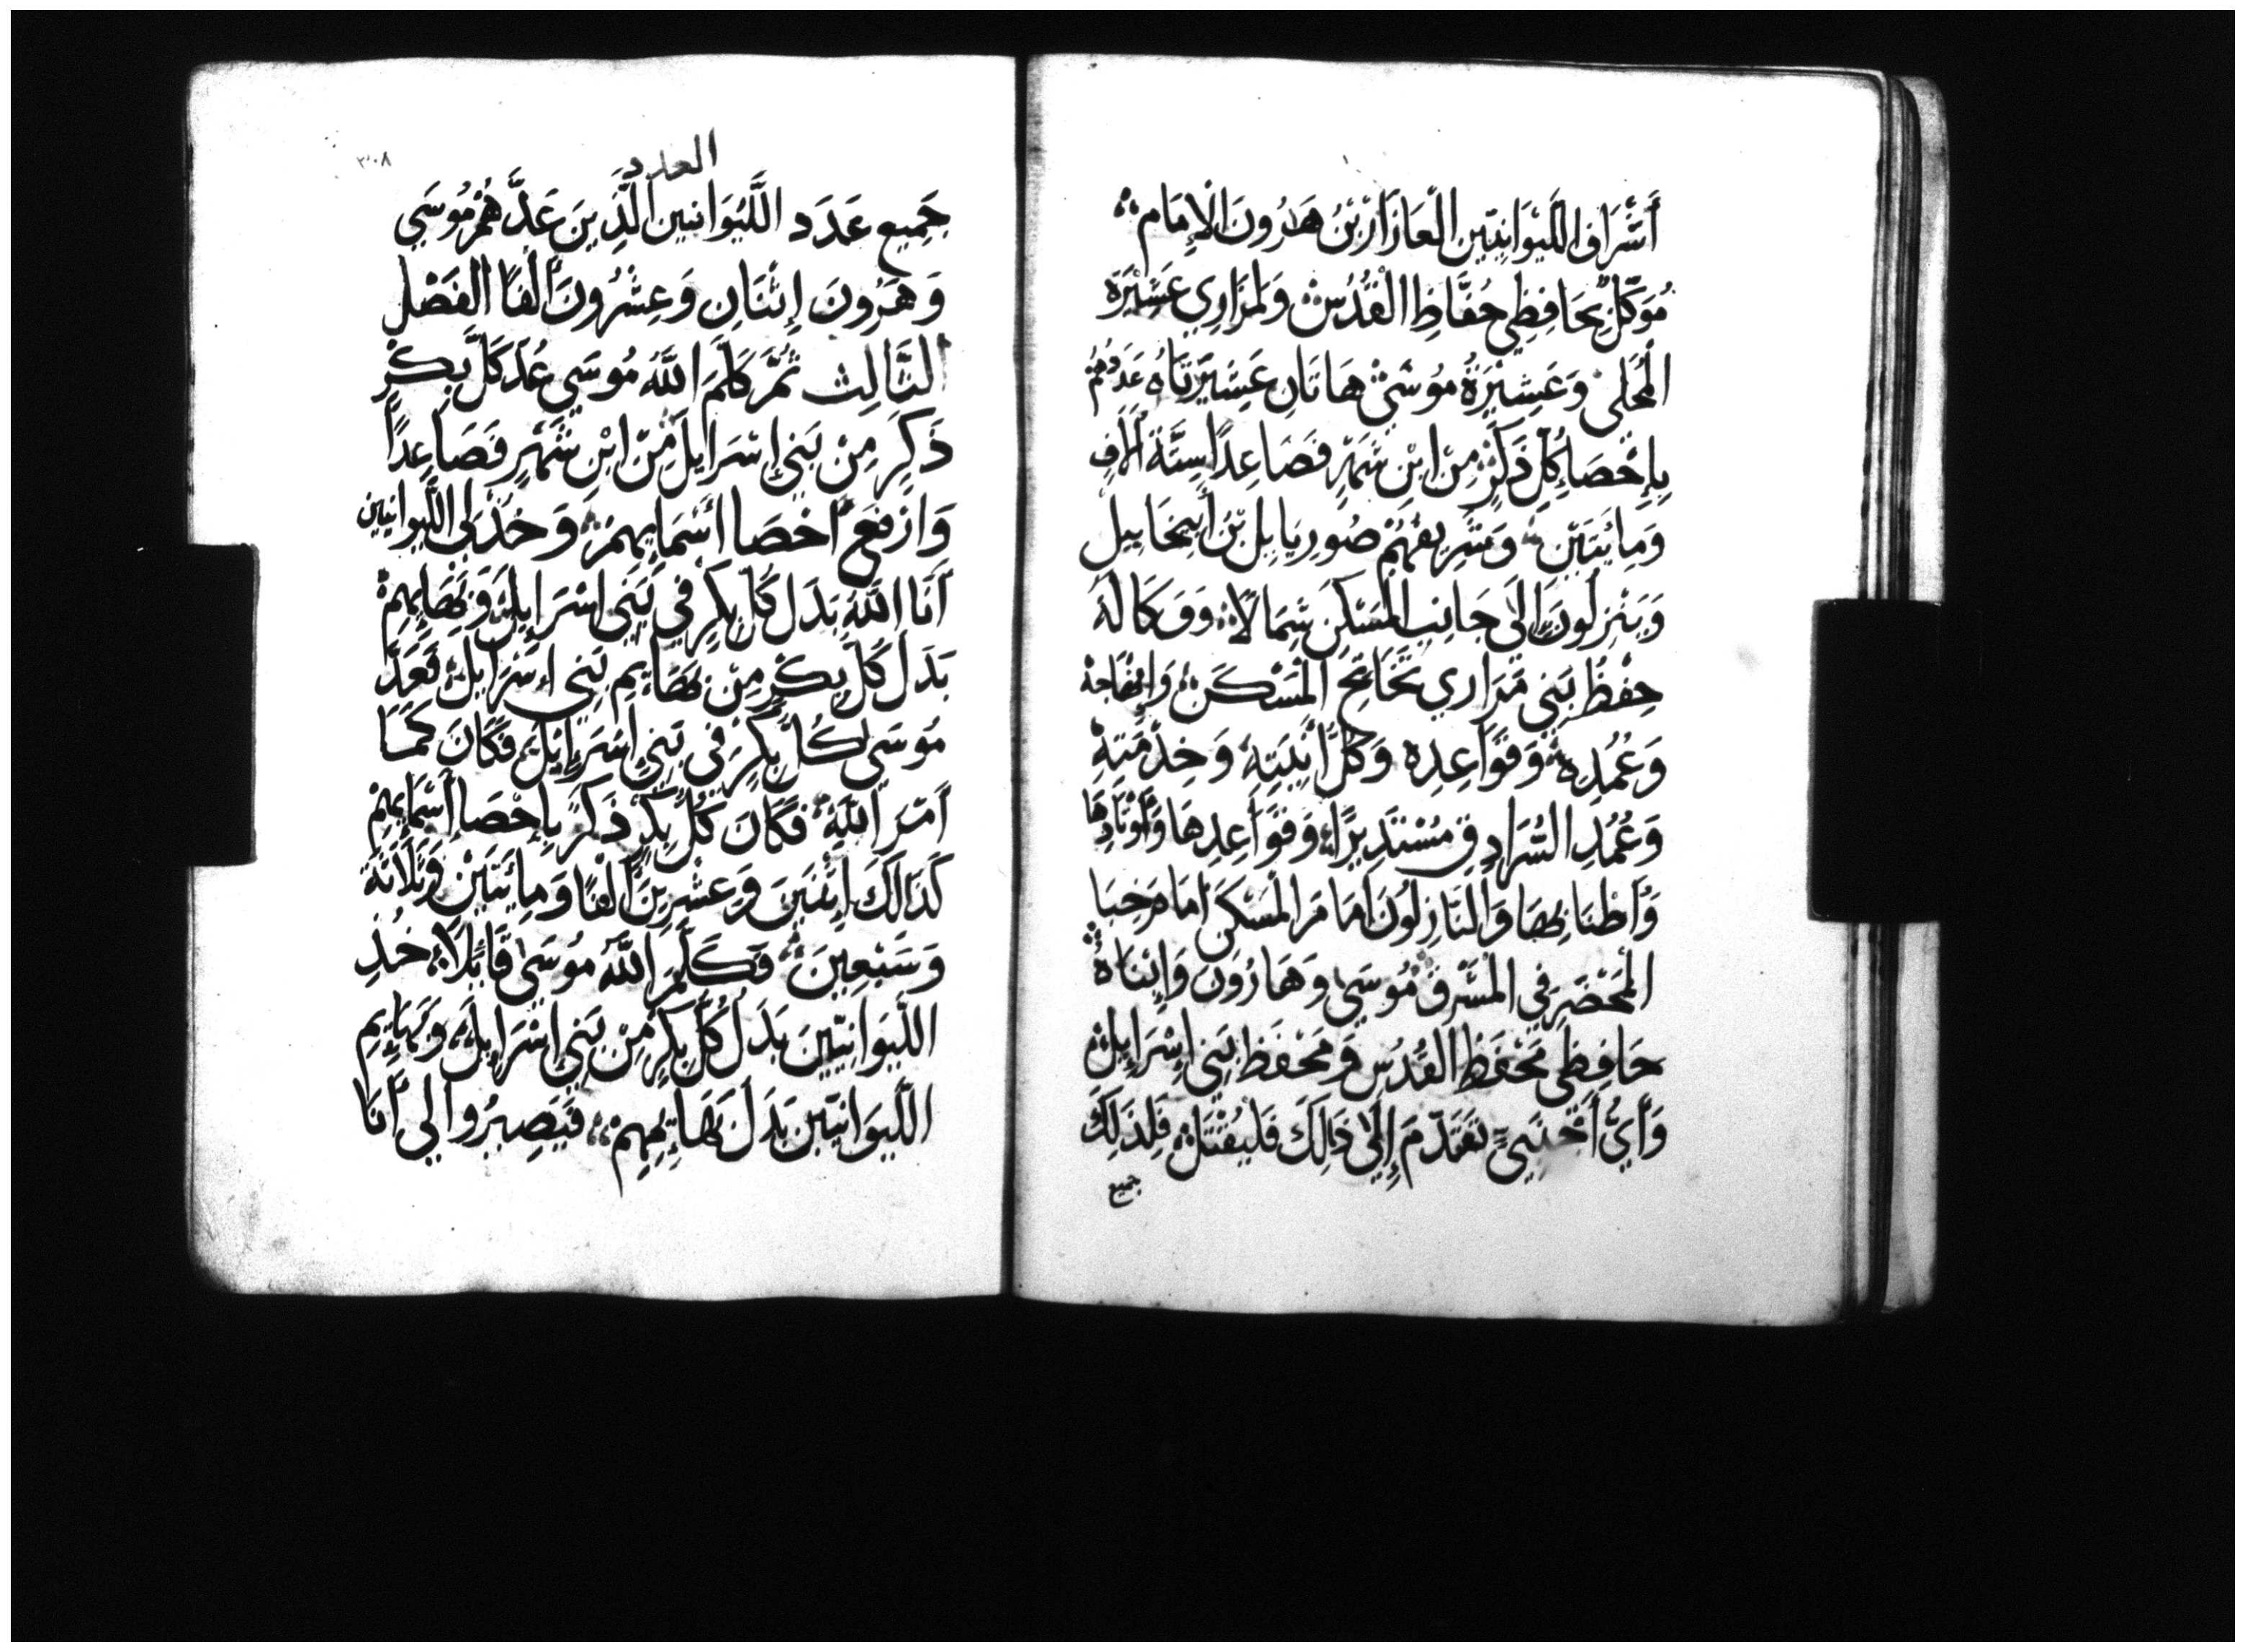 أَشْرَافِ اللَّيْوَانِيِّين الْعَازَارْ بْنُ هَارُونَ الْإِمَام
مُوَكَّل بِحَافِظِي حُفَّاظِ الْقُدُسْ وَلِمَرَارِي عَشِيْرَة
الْمُحَلي وَعَشِيْرَةُ مُوْشي هَاتَانِ عَشِيْرَتَاهُ عَدَدُهُمْ
بِإِحْصَا كُلّ ذَكَرٍ مِن ابْنِ شَهْرٍ فَصَاعِدًا سِتَّةَ آلَافٍ
وَمِائَتَيْنِ وَشَرِيفُهُمْ صُورِيَايِل بْنُ أَبِيخَايِيل
وَيَنْزِلُونَ إِلَى جَانِبِ الْمَسْكَنِ شِمَالًا وَوَكَالَةُ
حِفْظُ بَنِي مَرَارِي تَخَاتِجُ الْمَسْكَنِ وَامْحَاجه
وَعُمُدِهِ وَقَوَاعِدِه وَكُلّ آنِيَتِهِ وَخِدْمَتِهِ
وَعُمُدِ السُّرَادِقِ مُسْتَدِيرًا وَقَوَاعِدِهَا وَأَوْتَادِهَا
وَأَطْنَابِهَا وَالنَّازِلُونَ أَمَامَ الْمَسْكَنِ أَمَامَ خِبَا
الْمَحْضَرِ فِي الْمَشْرِقِ مُوسَى وَهَارُونَ وَابْنَاهُ
حَافِظِي مَحْفَظِ الْقُدُسِ وَمَحْفَظِ بَنِي إِسْرَايِلَ
وَأَيُّ أَجْنَبِيٍّ تَقَدَّمَ إِلَى ذَلِكَ فَلْيُقْتَلْ فَلِذَلِكَ
جميع
٣٠٨
العدد
جَمِيع عَدَدِ اللَّيْوَانيين الَّذِينَ عَدَّهُمْ مُوسَى
وَهَرُونَ إِثْنَانِ وَعِشْرُونَ أَلْفًا الْفَصْل
الثَّالِث ثُمَّ كَلَّمَ اللَّهُ مُوسَى عُدَّ كُلَّ بِكْرٍ
ذَكَرٍ مِنْ بَنِي إِسْرَايِلَ مِن ابْنِ شَهْرٍ فَصَاعِدًا
وَارْفَعْ احْصَا أَسْمَايِهِمْ وَخُذْ لِي اللَّيْوانِيين
أَنَا اللَّهُ بَدَل كُلّ بِكْرٍ فِي بَنِي إِسْرَايِلَ وَبَهَايِمِهِمْ
بَدَلَ كُلّ بِكْرٍ مِنْ بَهَايِمِ بَنِي إِسْرَايِلَ فَعَدَّ
مُوسَى كُلّ بِكْرٍ فِي بَنِي إِسْرَايِلَ فَكَانَ كَمَا
أَمَرَ اللَّهُ فَكَانَ كُلُّ بِكْرٍ ذَكَرٍ بِإِحْصَا أَسْمَايِهِمْ
كَذَالَكَ اثْنَيْنَ وَعِشْرِينَ أَلْفًا وَمِائَتَيْنِ وَثَلَاثَة
وَسَبْعِينَ فَكَلَّمَ اللَّهُ مُوسَى قَائِلًا خُذِ
اللَّيْوَانِيِّينَ بَدَلَ كُلِّ بِكْرٍ مِنْ بَنِي إِسْرَايِلَ وَبَهَايِمِ
اللَّيْوَانِيِّينَ بَدَلَ بَهَايِمِهِمْ فَيَصِيرُوا لِي أَنَا